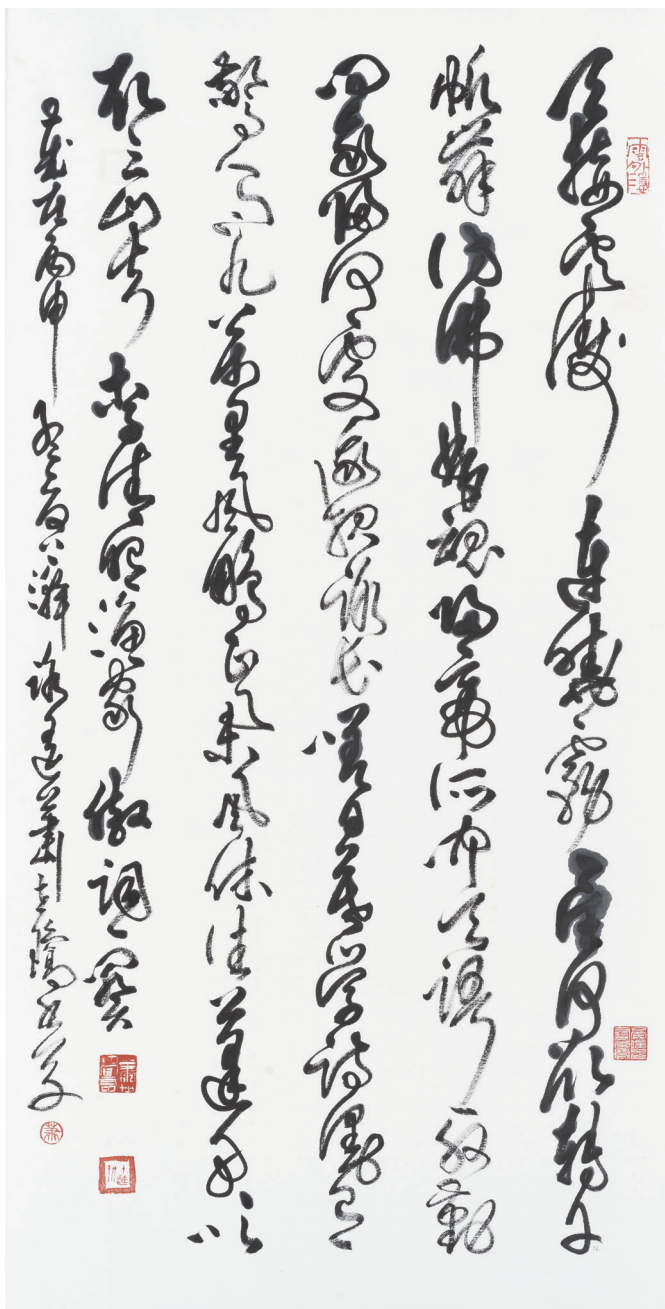 天接雲濤連曉霧星河欲轉千
帆舞仿佛夢魂歸帝所聞天語殷勤
問我歸何處我報路長嗟日暮學詩謾有
驚人句九萬里風鵬正舉風休住蓬舟吹
取三山去李清照漁家傲詞一闋
歲在丙申